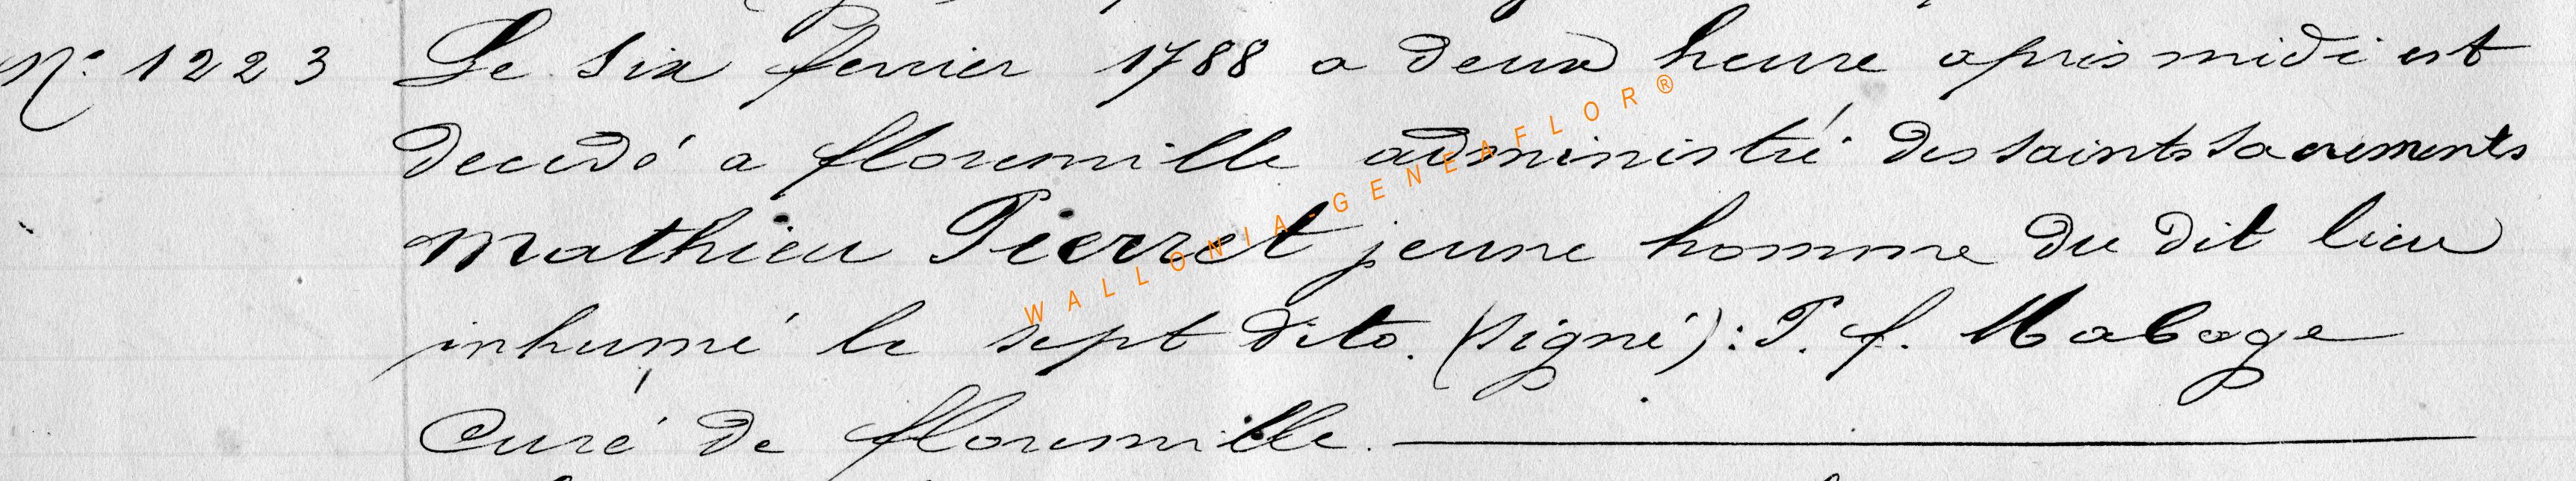 N° 1223 Le six fevrier 1788 a deux heure apris midi est
decedé a florenville administré des saints sacrements
Mathieu Pierret jeune homme du dit lieu
inhumé le sept dito. (signé): P. f. Mabage
Curé de florenville.
WALLONIA-GENEAFLOR®